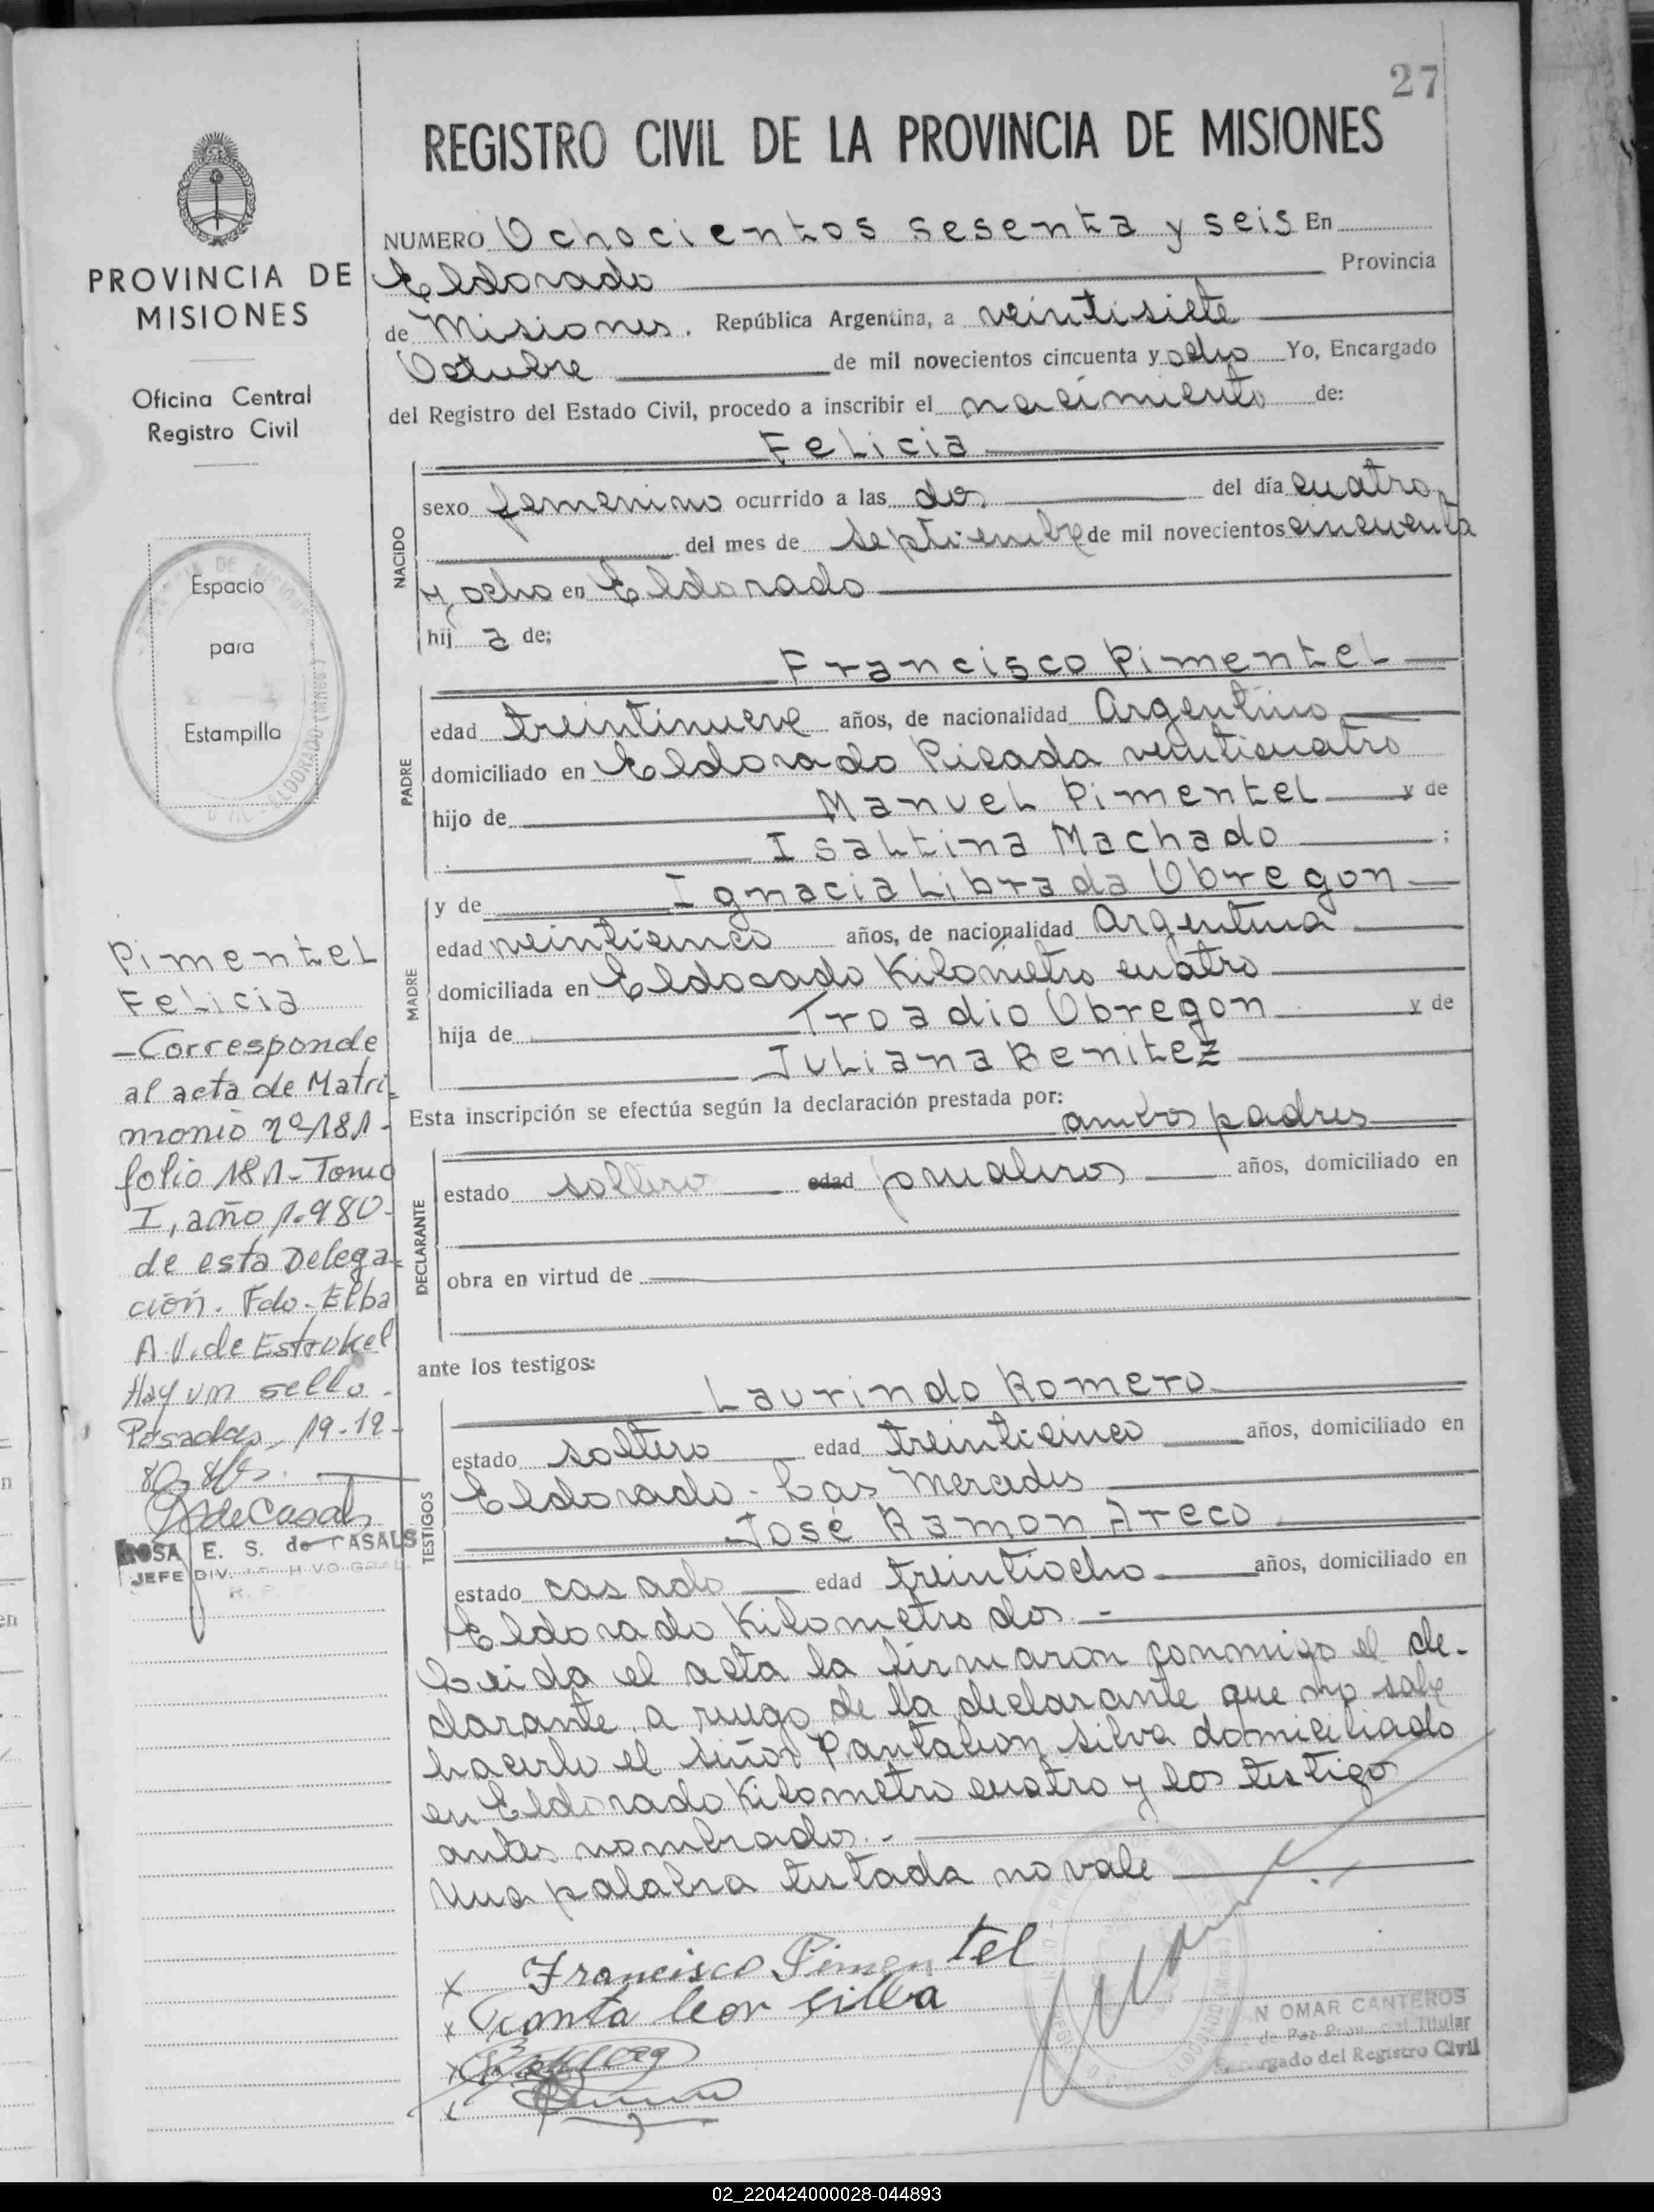 27
REGISTRO CIVIL DE LA PROVINCIA DE MISIONES
PROVINCIA DE
MISIONES
Oficina Central
Registro Civil
Espacio
para
Estampilla
Pimentel
Felicia
-Corresponde
al acta de Matri-
monio nº 181-
folio 181- Tomo
I, año 1.980-
de esta Delega-
ción. Fdo. Elba
A.V. de Estrokel
Hay un sello.
Posadas, 19-12-
80.
ROSA E. S. de CASALS
JEFE DIV.
NUMERO Ochocientos sesenta y seis En
Eldorado Provincia
de Misiones. República Argentina, a veintisiete
Octubre de mil novecientos cincuenta y ocho Yo, Encargado
del Registro del Estado Civil, procedo a inscribir el nacimiento de:
Felicia
NACIDO
sexo femenino ocurrido a las dos del día cuatro
del mes de septiembre de mil novecientos cincuenta
y ocho en Eldorado
hij a de;
Francisco Pimentel
PADRE
edad treintinueve años, de nacionalidad Argentino
domiciliado en Eldorado Picada veinticuatro
hijo de Manuel Pimentel y de
Isaltina Machado ;
y de Ignacia Librada Obregon
MADRE
edad veinticinco años, de nacionalidad Argentina
domiciliada en Eldorado Kilometro cuatro
hija de Troadio Obregon y de
Juliana Benitez
Esta inscripción se efectúa según la declaración prestada por:
ambos padres
DECLARANTE
estado soltero edad años, domiciliado en
obra en virtud de
ante los testigos:
Laurindo Romero
TESTIGOS
estado soltero edad treinticinco años, domiciliado en
Eldorado - Las Mercedes
José Ramon Areco
estado casado edad treintiocho años, domiciliado en
Eldorado Kilometro dos. -
Leida el acta la firmaron conmigo el de-
clarante, a ruego de la declarante que no sabe
hacerlo el señor Pantaleon Silva domiciliado
en Eldorado Kilometro cuatro y los testigos
antes nombrados. -
Una palabra testada no vale
x Francisco Pimentel
x Panta leon Silba
x
x
N OMAR CANTEROS
de Paz Titular
Encargado del Registro Civil
02_220424000028-044893